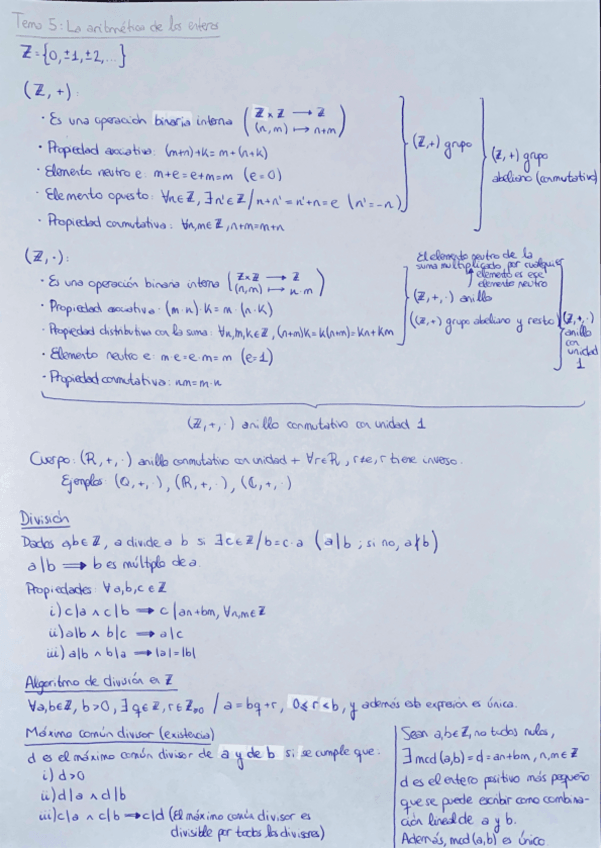 Tema 5: La aritmética de los enteros
Z = {0, ±1, ±2, ...}
(Z, +):
· Es una operación binaria interna (Z × Z → Z
(n, m) ↦ n+m)
· Propiedad asociativa: (m+n)+k = m+(n+k)
· Elemento neutro e: m+e = e+m = m (e=0)
· Elemento opuesto: ∀n∈Z, ∃n'∈Z / n+n' = n'+n = e (n'=-n)
· Propiedad conmutativa: ∀n,m∈Z, n+m = m+n
(Z,+) grupo
(Z,+) grupo
abeliano (conmutativo)
(Z, ·):
· Es una operación binaria interna (Z×Z → Z
(n,m) ↦ n·m)
· Propiedad asociativa: (m·n)·k = m·(n·k)
· Propiedad distributiva con la suma: ∀n,m,k∈Z, (n+m)k = k(n+m) = kn+km
· Elemento neutro e: m·e = e·m = m (e=1)
· Propiedad conmutativa: n·m = m·n
El elemento neutro de la
suma multiplicado por cualquier
elemento es ese
elemento neutro
(Z,+,·) anillo
((Z,+) grupo abeliano y resto)
(Z,+,·)
anillo
con
unidad
1
(Z,+,·) anillo conmutativo con unidad 1
Cuerpo: (R,+,·) anillo conmutativo con unidad + ∀r∈R, r≠e, r tiene inverso.
Ejemplos: (Q,+,·), (R,+,·), (C,+,·)
División
Dados a,b∈Z, a divide a b si ∃c∈Z / b=c·a (a|b ; si no, a∤b)
a|b ⟹ b es múltiplo de a
Propiedades: ∀a,b,c∈Z
i) c|a ∧ c|b ⟹ c|an+bm, ∀n,m∈Z
ii) a|b ∧ b|c ⟹ a|c
iii) a|b ∧ b|a ⟹ |a|=|b|
Algoritmo de división en Z
∀a,b∈Z, b>0, ∃q∈Z, r∈Z≥0 / a = bq+r, 0≤r<b, y además esta expresión es única.
Máximo común divisor (existencia)
d es el máximo común divisor de a y de b si se cumple que:
i) d>0
ii) d|a ∧ d|b
iii) c|a ∧ c|b ⟹ c|d (El máximo común divisor es
divisible por todos los divisores)
Sean a,b∈Z, no todos nulos,
∃ mcd(a,b) = d = an+bm, n,m∈Z
d es el entero positivo más pequeño
que se puede escribir como combina-
ción lineal de a y b.
Además, mcd(a,b) es único.